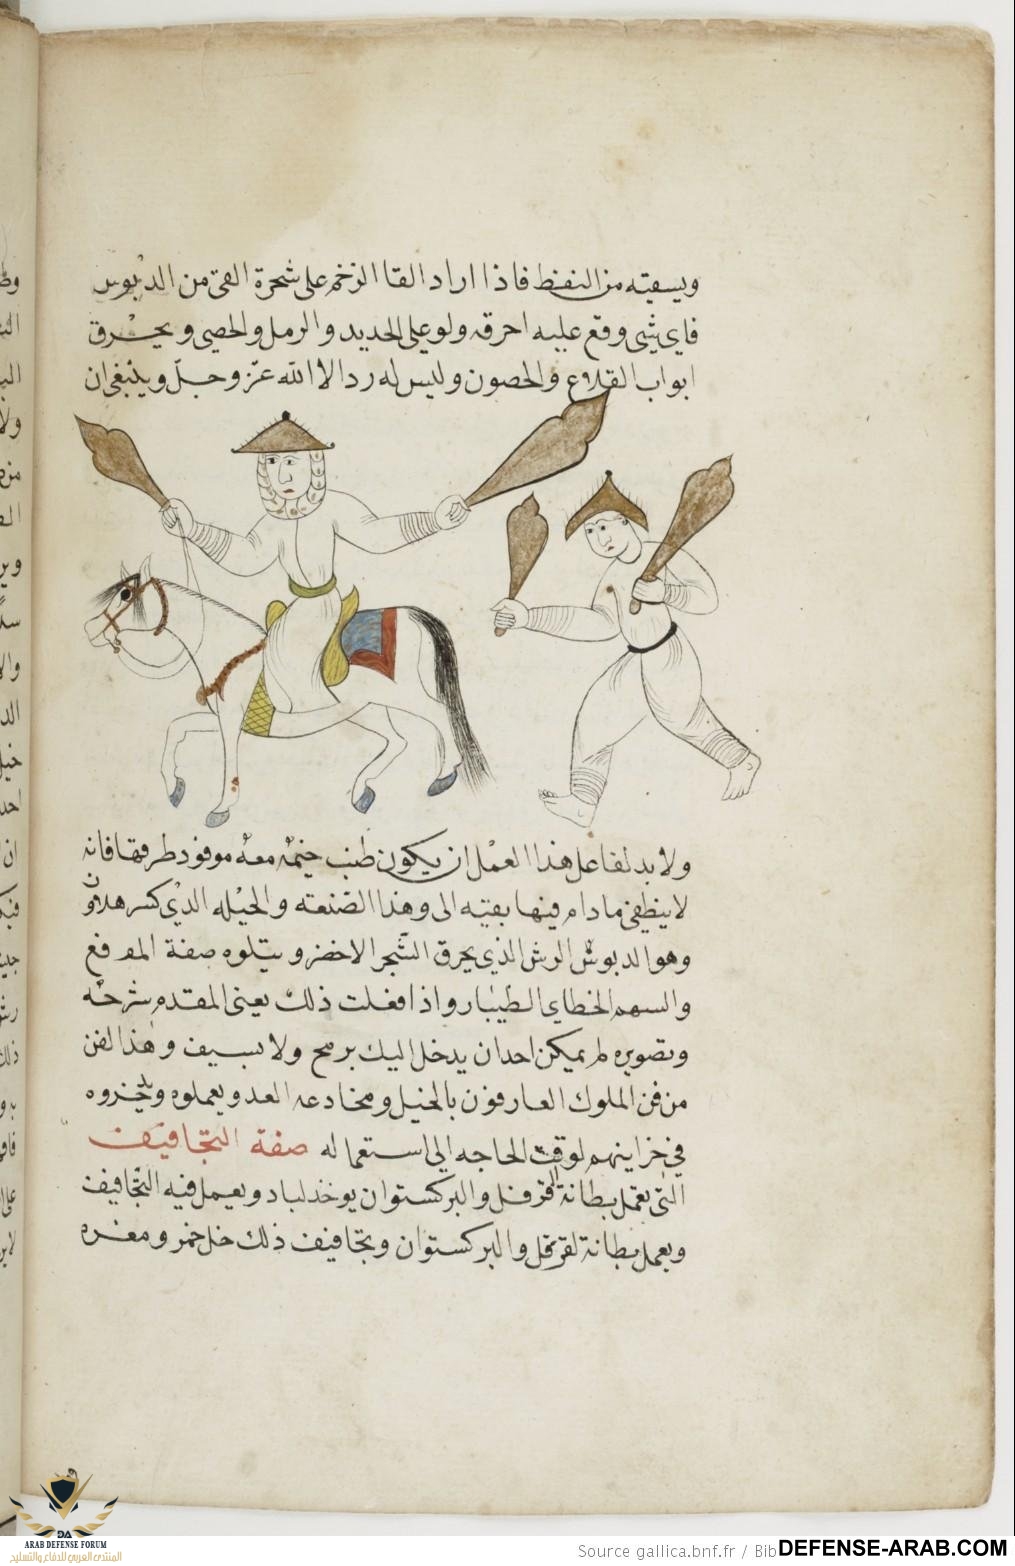 ويسقيه من النفط فاذا اراد القا الزخم على شجرة القى من الدبوس
فاى شى وقع عليه احرقه ولو على الحديد والرمل والحصى ويحرق
ابواب القلاع والحصون وليس له رد الا الله عزّ وجلّ وينبغى ان
ولا بد لفاعل هذا العمل ان يكون طنب خيمه معه موقود طرفها فانه
لا ينطفى ما دام فيها بقيه الى وهذا الصنعته والحيله الذى كسر هلاوون
وهو الدبوش الرش الذى يحرق الشجر الاخضر ويتلوه صفة المدفع
والسهم الخطاى الطيار واذا فعلت ذلك يعنى المقدم شرحه
وتصويره لم يمكن احدان يدخل اليك برمح ولا بسيف وهذا الفن
من فن الملوك العارفون بالخيل ومخادعه العدو يعملوه ويدخروه
فى خزاينهم لوقت الحاجه الى استعماله صفة التجافيف
التى تعمل بطانة القرقل والبركستوان يوخذ لباد ويعمل فيه التجافيف
ويعمل بطانة لقرقل والبركستوان وتجافيف ذلك خل خمر ومغره
ARAB DEFENSE FORUM
المنتدى العربي للدفاع والتسليح
Source gallica.bnf.fr / Bib
DEFENSE-ARAB.COM